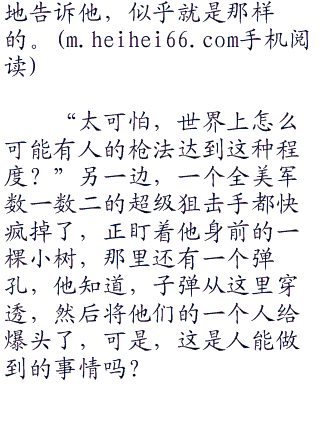 地告诉他，似乎就是那样
的。(m.heihei66.com手机阅
读)
“太可怕，世界上怎么
可能有人的枪法达到这种程
度？”另一边，一个全美军
数一数二的超级狙击手都快
疯掉了，正盯着他身前的一
棵小树，那里还有一个弹
孔，他知道，子弹从这里穿
透，然后将他们的一个人给
爆头了，可是，这是人能做
到的事情吗？